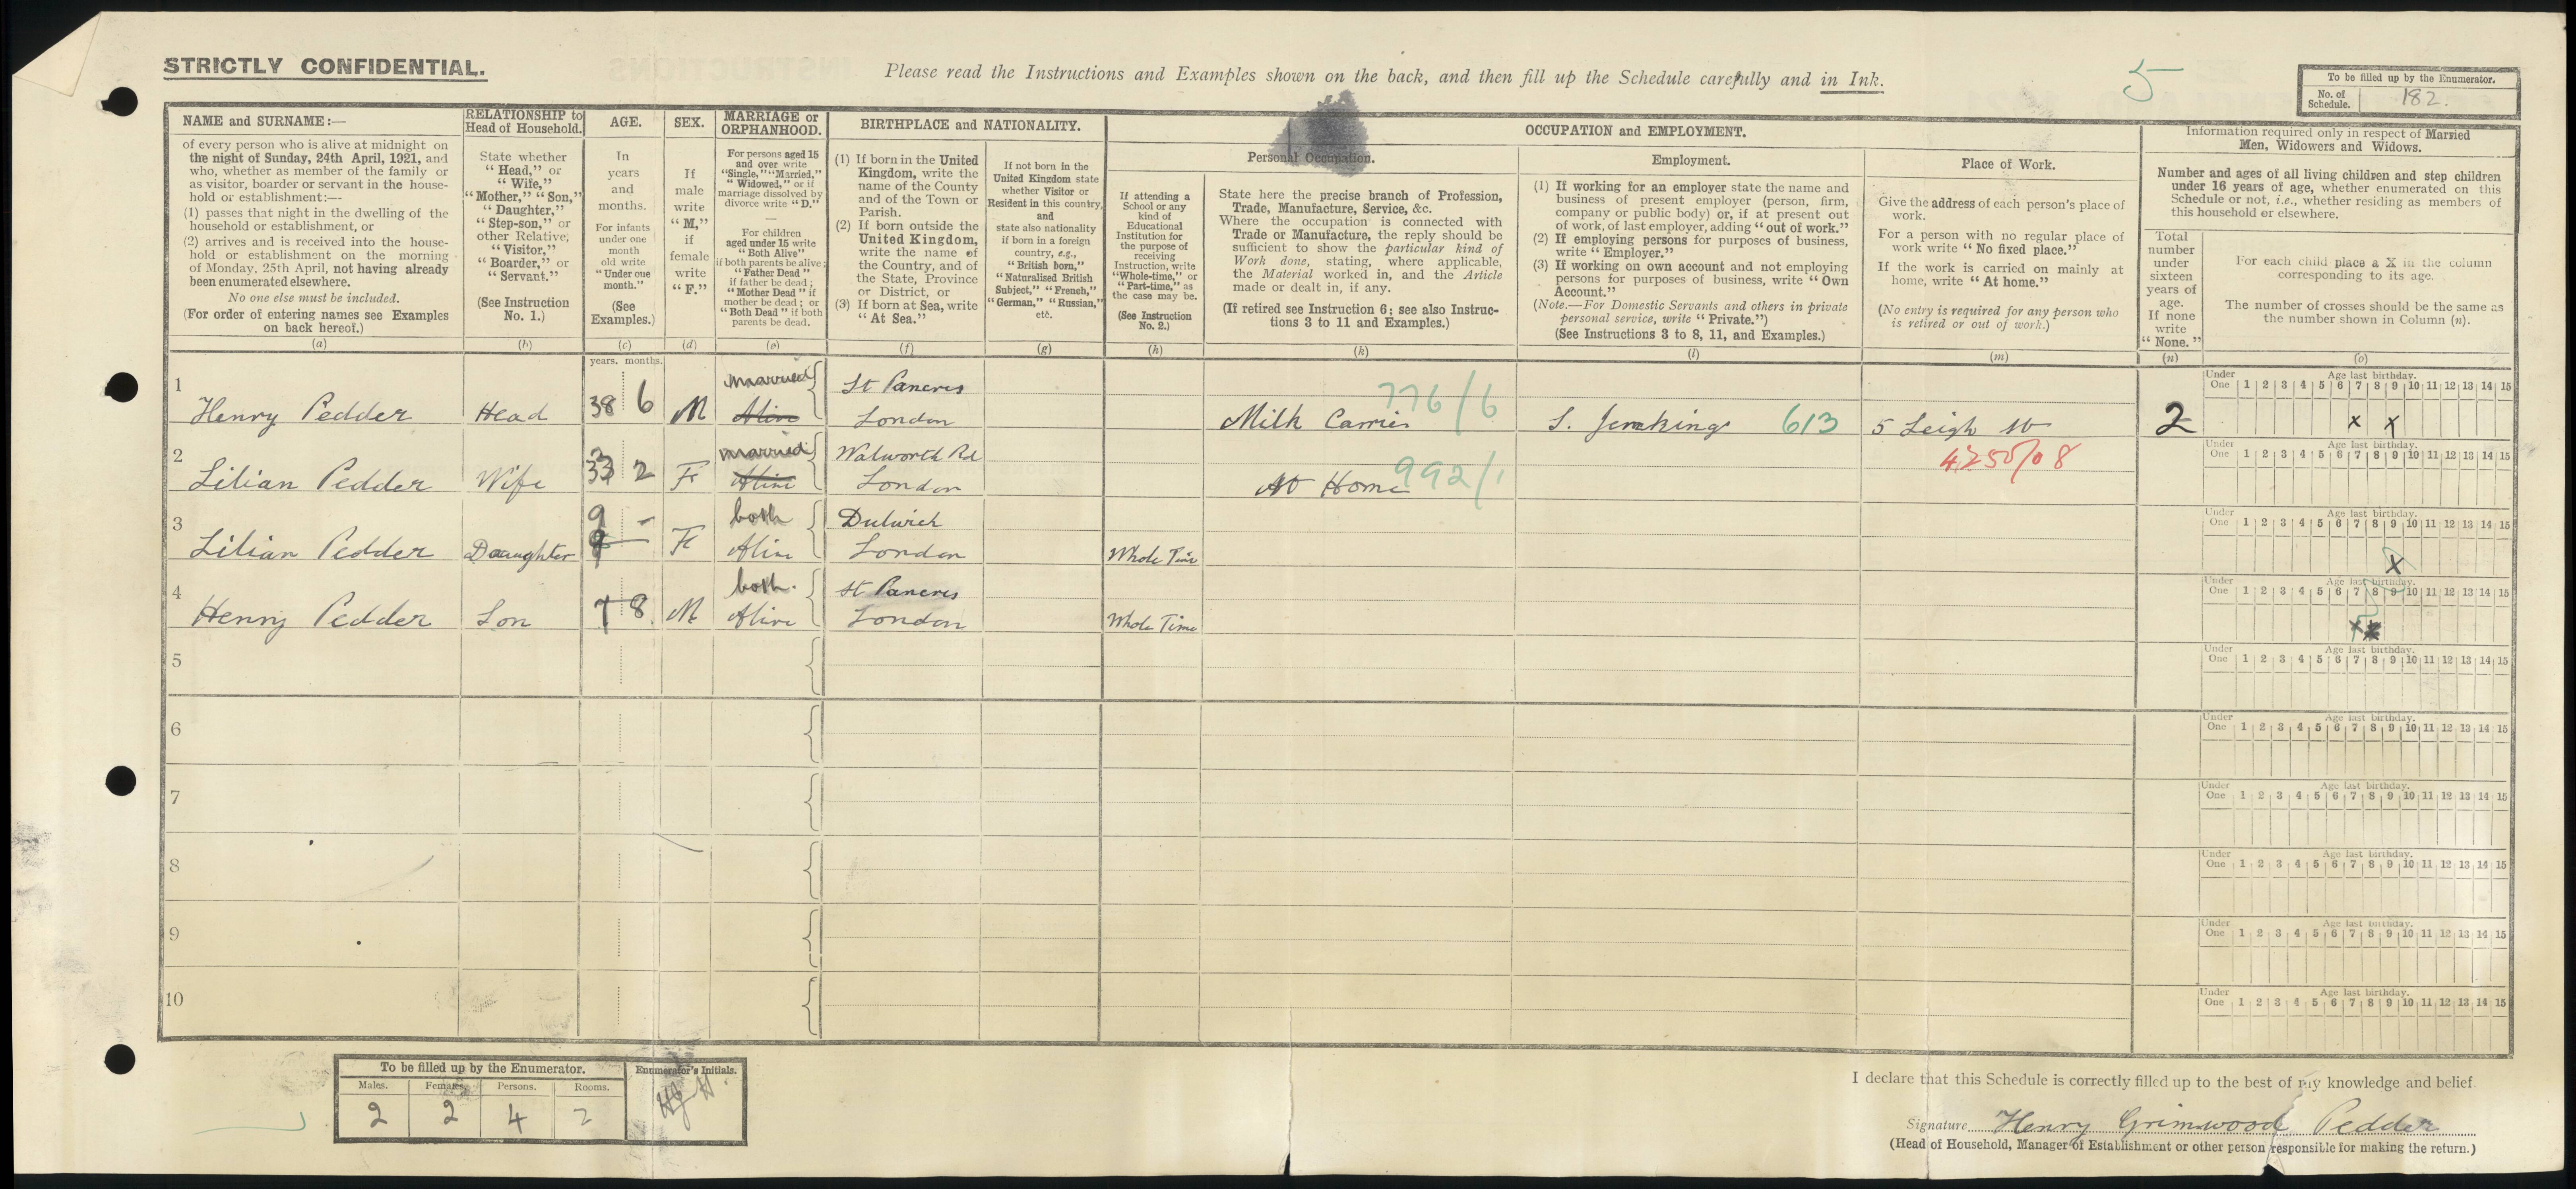 STRICTLY CONFIDENTIAL.
Please read the Instructions and Examples shown on the back, and then fill up the Schedule carefully and in Ink.
5
To be filled up by the Enumerator.
No. of Schedule. 182.
NAME and SURNAME:—
of every person who is alive at midnight on
the night of Sunday, 24th April, 1921, and
who, whether as member of the family or
as visitor, boarder or servant in the house-
hold or establishment:—
(1) passes that night in the dwelling of the
household or establishment, or
(2) arrives and is received into the house-
hold or establishment on the morning
of Monday, 25th April, not having already
been enumerated elsewhere.
No one else must be included.
(For order of entering names see Examples
on back hereof.)
(a)
RELATIONSHIP to
Head of Household.
State whether
"Head," or
"Wife,"
"Mother," "Son,"
"Daughter,"
"Step-son," or
other Relative,
"Visitor,"
"Boarder," or
"Servant."
(See Instruction
No. 1.)
(b)
AGE.
In
years
and
months.
For infants
under one
month
old write
"Under one
month."
(See
Examples.)
(c)
SEX.
If
male
write
"M,"
if
female
write
"F."
(d)
MARRIAGE or
ORPHANHOOD.
For persons aged 15
and over write
"Single," "Married,"
"Widowed," or if
marriage dissolved by
divorce write "D."
—
For children
aged under 15 write
"Both Alive"
if both parents be alive;
"Father Dead"
if father be dead;
"Mother Dead" if
mother be dead; or
"Both Dead" if both
parents be dead.
(e)
BIRTHPLACE and NATIONALITY.
(1) If born in the United
Kingdom, write the
name of the County
and of the Town or
Parish.
(2) If born outside the
United Kingdom,
write the name of
the Country, and of
the State, Province
or District, or
(3) If born at Sea, write
"At Sea."
(f)
If not born in the
United Kingdom state
whether Visitor or
Resident in this country,
and
state also nationality
if born in a foreign
country, e.g.,
"British born,"
"Naturalised British
Subject," "French,"
"German," "Russian,"
etc.
(g)
OCCUPATION and EMPLOYMENT.
If attending a
School or any
kind of
Educational
Institution for
the purpose of
receiving
Instruction, write
"Whole-time," or
"Part-time," as
the case may be.
(See Instruction
No. 2.)
(h)
Personal Occupation.
State here the precise branch of Profession,
Trade, Manufacture, Service, &c.
Where the occupation is connected with
Trade or Manufacture, the reply should be
sufficient to show the particular kind of
Work done, stating, where applicable,
the Material worked in, and the Article
made or dealt in, if any.
(If retired see Instruction 6; see also Instruc-
tions 3 to 11 and Examples.)
(k)
Employment.
(1) If working for an employer state the name and
business of present employer (person, firm,
company or public body) or, if at present out
of work, of last employer, adding "out of work."
(2) If employing persons for purposes of business,
write "Employer."
(3) If working on own account and not employing
persons for purposes of business, write "Own
Account."
(Note.—For Domestic Servants and others in private
personal service, write "Private.")
(See Instructions 3 to 8, 11, and Examples.)
(l)
Place of Work.
Give the address of each person's place of
work.
For a person with no regular place of
work write "No fixed place."
If the work is carried on mainly at
home, write "At home."
(No entry is required for any person who
is retired or out of work.)
(m)
Information required only in respect of Married
Men, Widowers and Widows.
Number and ages of all living children and step children
under 16 years of age, whether enumerated on this
Schedule or not, i.e., whether residing as members of
this household or elsewhere.
Total
number
under
sixteen
years of
age.
If none
write
"None."
(n)
For each child place a X in the column
corresponding to its age.
The number of crosses should be the same as
the number shown in Column (n).
(o)
years. months.
1 Henry Pedder Head 38 6 M Married Alive St Pancres London Milk Carrier 776/6 S. Jenkings 613 5 Leigh St 2
Under One Age last birthday. 1 2 3 4 5 6 7 8 9 10 11 12 13 14 15
x x
2 Lilian Pedder Wife 33 2 F married Alive Walworth Rd London At Home 992/1 4250/08
Under One Age last birthday. 1 2 3 4 5 6 7 8 9 10 11 12 13 14 15
3 Lilian Pedder Daaughter 9 - F both Alive Dulwich London Whole Time
Under One Age last birthday. 1 2 3 4 5 6 7 8 9 10 11 12 13 14 15
x
4 Henry Pedder Son 7 8 M both. Alive St Pancres London Whole Time
Under One Age last birthday. 1 2 3 4 5 6 7 8 9 10 11 12 13 14 15
x x
5
Under One Age last birthday. 1 2 3 4 5 6 7 8 9 10 11 12 13 14 15
6
Under One Age last birthday. 1 2 3 4 5 6 7 8 9 10 11 12 13 14 15
7
Under One Age last birthday. 1 2 3 4 5 6 7 8 9 10 11 12 13 14 15
8
Under One Age last birthday. 1 2 3 4 5 6 7 8 9 10 11 12 13 14 15
9
Under One Age last birthday. 1 2 3 4 5 6 7 8 9 10 11 12 13 14 15
10
Under One Age last birthday. 1 2 3 4 5 6 7 8 9 10 11 12 13 14 15
To be filled up by the Enumerator.
Enumerator's Initials.
Males. Females. Persons. Rooms.
2 2 4 2
I declare that this Schedule is correctly filled up to the best of my knowledge and belief.
Signature Henry Grimwood Pedder
(Head of Household, Manager of Establishment or other person responsible for making the return.)